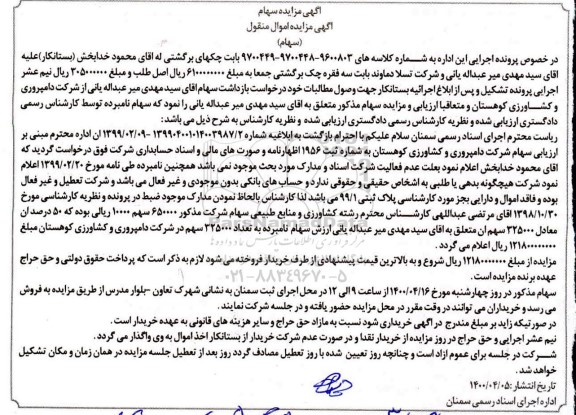 آگهی مزایده سهام
آگهی مزایده اموال منقول
(سهام)
در خصوص پرونده اجرایی این اداره به شماره کلاسه های ۹۶۰۰۸۰۳-۹۷۰۰۴۴۸-۹۷۰۰۴۴۹ بابت چکهای برگشتی له اقای محمود خدابخش (بستانکار) علیه
اقای سید مهدی میر عبداله یانی و شرکت تسلا دماوند بابت سه فقره چک برگشتی جمعا به مبلغ ۶۱۰۰۰۰۰۰۰۰ ریال اصل طلب و مبلغ ۳۰۵۰۰۰۰۰۰ ریال نیم عشر
اجرایی پرونده تشکیل و پس از ابلاغ اجرائیه بستانکار جهت وصول مطالبات خود درخواست بازداشت سهام اقای سید مهدی میر عبداله یانی از شرکت دامپروری
و کشاورزی کوهستان و متعاقبا ارزیابی و مزایده سهام مذکور متعلق به اقای سید مهدی میر عبداله یانی را نمود که سهام نامبرده توسط کارشناس رسمی
دادگستری ارزیابی شده و نظریه کارشناس رسمی دادگستری ارزیابی شده و نظریه کارشناس به شرح ذیل می باشد:
ریاست محترم اجرای اسناد رسمی سمنان سلام علیکم با احترام بازگشت به ابلاغیه شماره ۱۳۹۹۰۴۰۰۱۰۱۴۰۰۳۹۸۷/۲-۱۳۹۹/۰۲/۰۹ ان اداره محترم مبنی بر
ارزیابی سهام شرکت دامپروری و کشاورزی کوهستان به شماره ثبت ۱۹۵۶ اظهارنامه و صورت های مالی و اسناد حسابداری شرکت فوق درخواست گردید که
اقای محمود خدابخش اعلام نمود بعلت عدم فعالیت شرکت اسناد و مدارک مورد بحث موجود نمی باشد همچنین نامبرده طی نامه مورخ ۱۳۹۹/۰۲/۲۰ اعلام
نمود شرکت هیچگونه بدهی یا طلبی به اشخاص حقیقی و حقوقی ندارد و حساب های بانکی بدون موجودی و غیر فعال می باشد و شرکت تعطیل و غیر فعال
بوده و فاقد اموال و دارایی بجز مورد کارشناسی پلاک ثبتی ۹۹/۱ می باشد لذا کارشناس بالحاظ نمودن مدارک موجود ضبط در پرونده و نظریه کارشناسی مورخ
۱۳۹۸/۱۰/۳۰ اقای مرتضی عبداللهی کارشناس محترم رشته کشاورزی و منابع طبیعی سهام شرکت مذکور ۶۵۰۰۰۰ سهم ۱۰۰۰۰ ریالی بوده که ۵۰ درصد ان
معادل ۳۲۵۰۰۰ سهم ان متعلق به اقای سید مهدی میر عبداله یانی ارزش سهام نامبرده به تعداد ۳۲۵۰۰۰ سهم در شرکت دامپروری و کشاورزی کوهستان مبلغ
۱۲۱۸۰۰۰۰۰۰۰ ریال اعلام می گردد.
مزایده از مبلغ ۱۲۱۸۰۰۰۰۰۰۰ ریال شروع و به بالاترین قیمت پیشنهادی از طرف خریدار فروخته می شود لازم به ذکر است که پرداخت حقوق دولتی و حق حراج
عهده برنده مزایده است.
۰۲۱-۸۸۳۴۹۶۷۰-۵
سهام مذکور در روز چهارشنبه مورخ ۱۴۰۰/۰۴/۱۶ از ساعت ۹ الی ۱۲ در محل اجرای ثبت سمنان به نشانی شهرک تعاون -بلوار مدرس از طریق مزایده به فروش
می رسد و خریداران می توانند در وقت مقرر در محل مزایده حضور یافته و در جلسه شرکت نمایند.
در صورتیکه زاید بر مبلغ مندرج در آگهی خریداری شود نسبت به مازاد حق حراج و سایر هزینه های قانونی به عهده خریدار است.
نیم عشر اجرایی و حق حراج در روز مزایده از خریدار نقدا و در صورت عدم شرکت خریدار از بستانکار اخذ اموال به وی واگذار می گردد.
شرکت در جلسه برای عموم ازاد است و چنانچه روز تعیین شده با روز تعطیل مصادف گردد روز بعد از تعطیل جلسه مزایده در همان زمان و مکان تشکیل
خواهد شد.
تاریخ انتشار: ۱۴۰۰/۰۴/۰۵
اداره اجرای اسناد رسمی سمنان